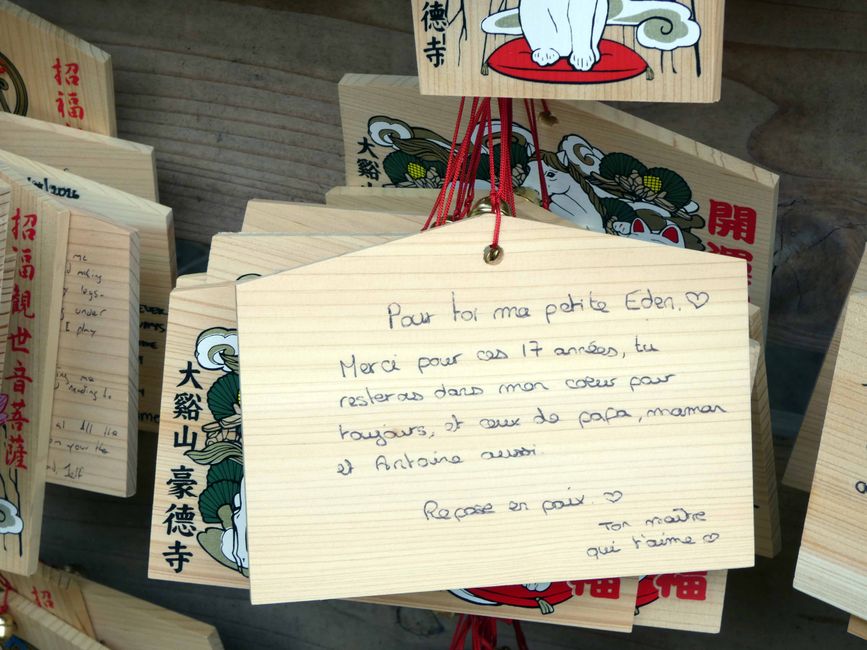 招福
德寺
大谿山
開運
招福観世音菩薩
me
making
legs.
under
I play
me
needing to
All the
your the
self
大谿山 豪德寺
Pour toi ma petite Eden. ♡
Merci pour ces 17 années, tu
resteras dans mon coeur pour
toujours, et ceux de papa, maman
et Antoine aussi.
Repose en paix. ♡
Ton maître
qui t'aime ♡
福
福
招